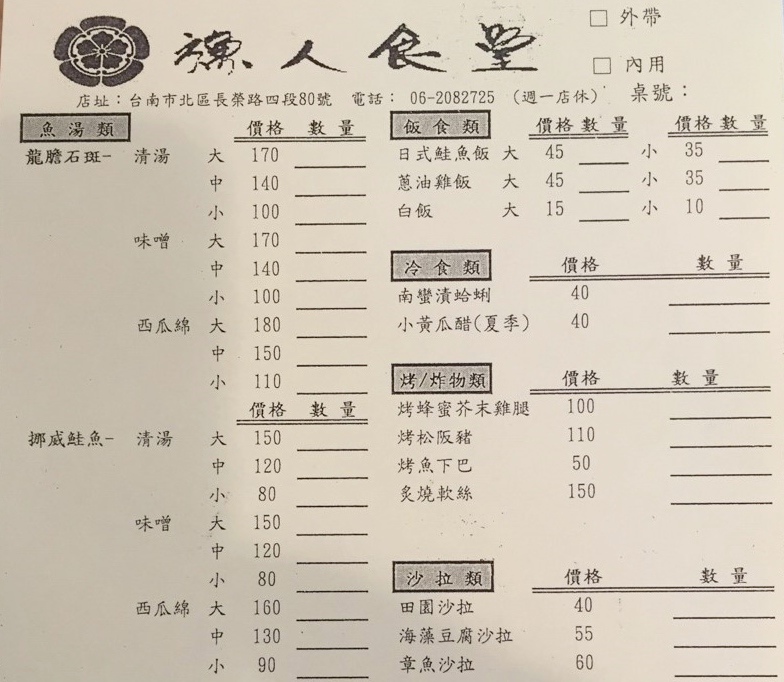 漁人食堂
□ 外帶
□ 內用
店址：台南市北區長榮路四段80號 電話： 06-2082725 (週一店休) 桌號：
魚湯類 價格 數量
龍膽石斑- 清湯 大 170
中 140
小 100
味噌 大 170
中 140
小 100
西瓜綿 大 180
中 150
小 110
價格 數量
挪威鮭魚- 清湯 大 150
中 120
小 80
味噌 大 150
中 120
小 80
西瓜綿 大 160
中 130
小 90
飯食類 價格 數量 價格 數量
日式鮭魚飯 大 45 小 35
蔥油雞飯 大 45 小 35
白飯 大 15 小 10
冷食類 價格 數量
南蠻漬蛤蜊 40
小黃瓜醋(夏季) 40
烤/炸物類 價格 數量
烤蜂蜜芥末雞腿 100
烤松阪豬 110
烤魚下巴 50
炙燒軟絲 150
沙拉類 價格 數量
田園沙拉 40
海藻豆腐沙拉 55
章魚沙拉 60